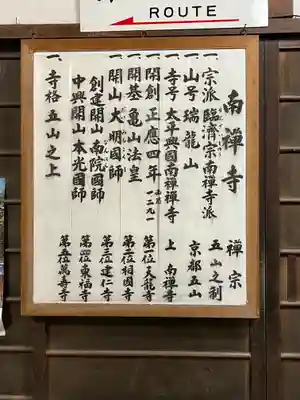 ROUTE
南禅寺
禅宗
一、宗派 臨濟宗南禅寺派
五山之制
一、山号 瑞龍山
京都五山
一、寺子 太平興國南禅禅寺
上 南禅寺
一、開創 正應四年 西暦一二九一
第一位 天龍寺
一、開基 亀山法皇
第二位 相國寺
一、開山 大明國師
第三位 建仁寺
創建開山 南院國師
第四位 東福寺
中興開山 本光國師
第五位 萬寿寺
一、寺格 五山之上